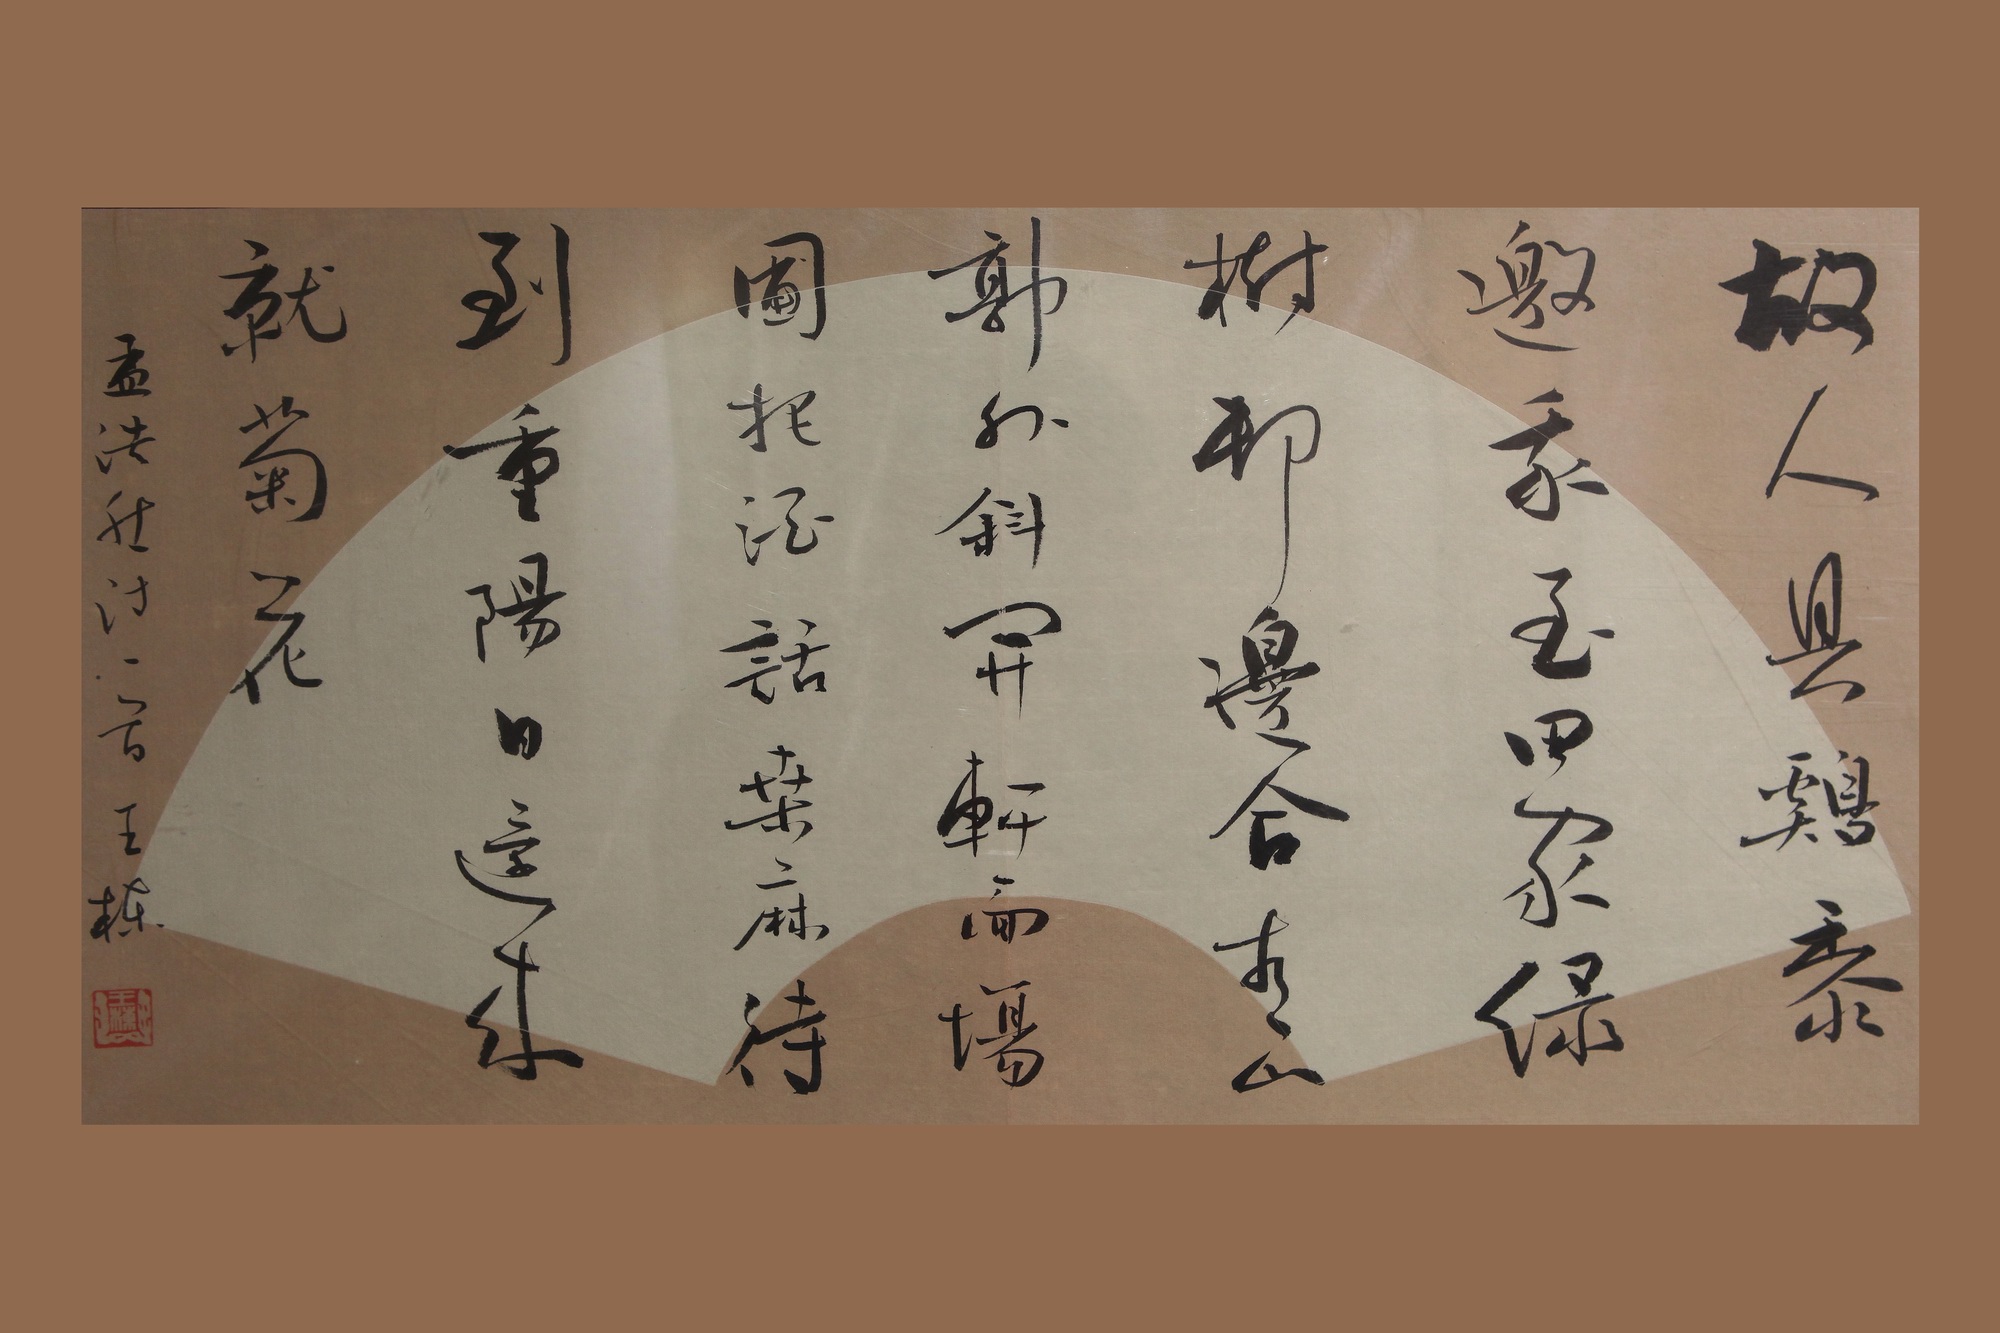 故人具鷄黍
邀我至田家綠
樹邨邊合青山
郭外斜開軒面場
圃把酒話桒麻待
到重陽日還來
就菊花
孟浩然詩一首王棟